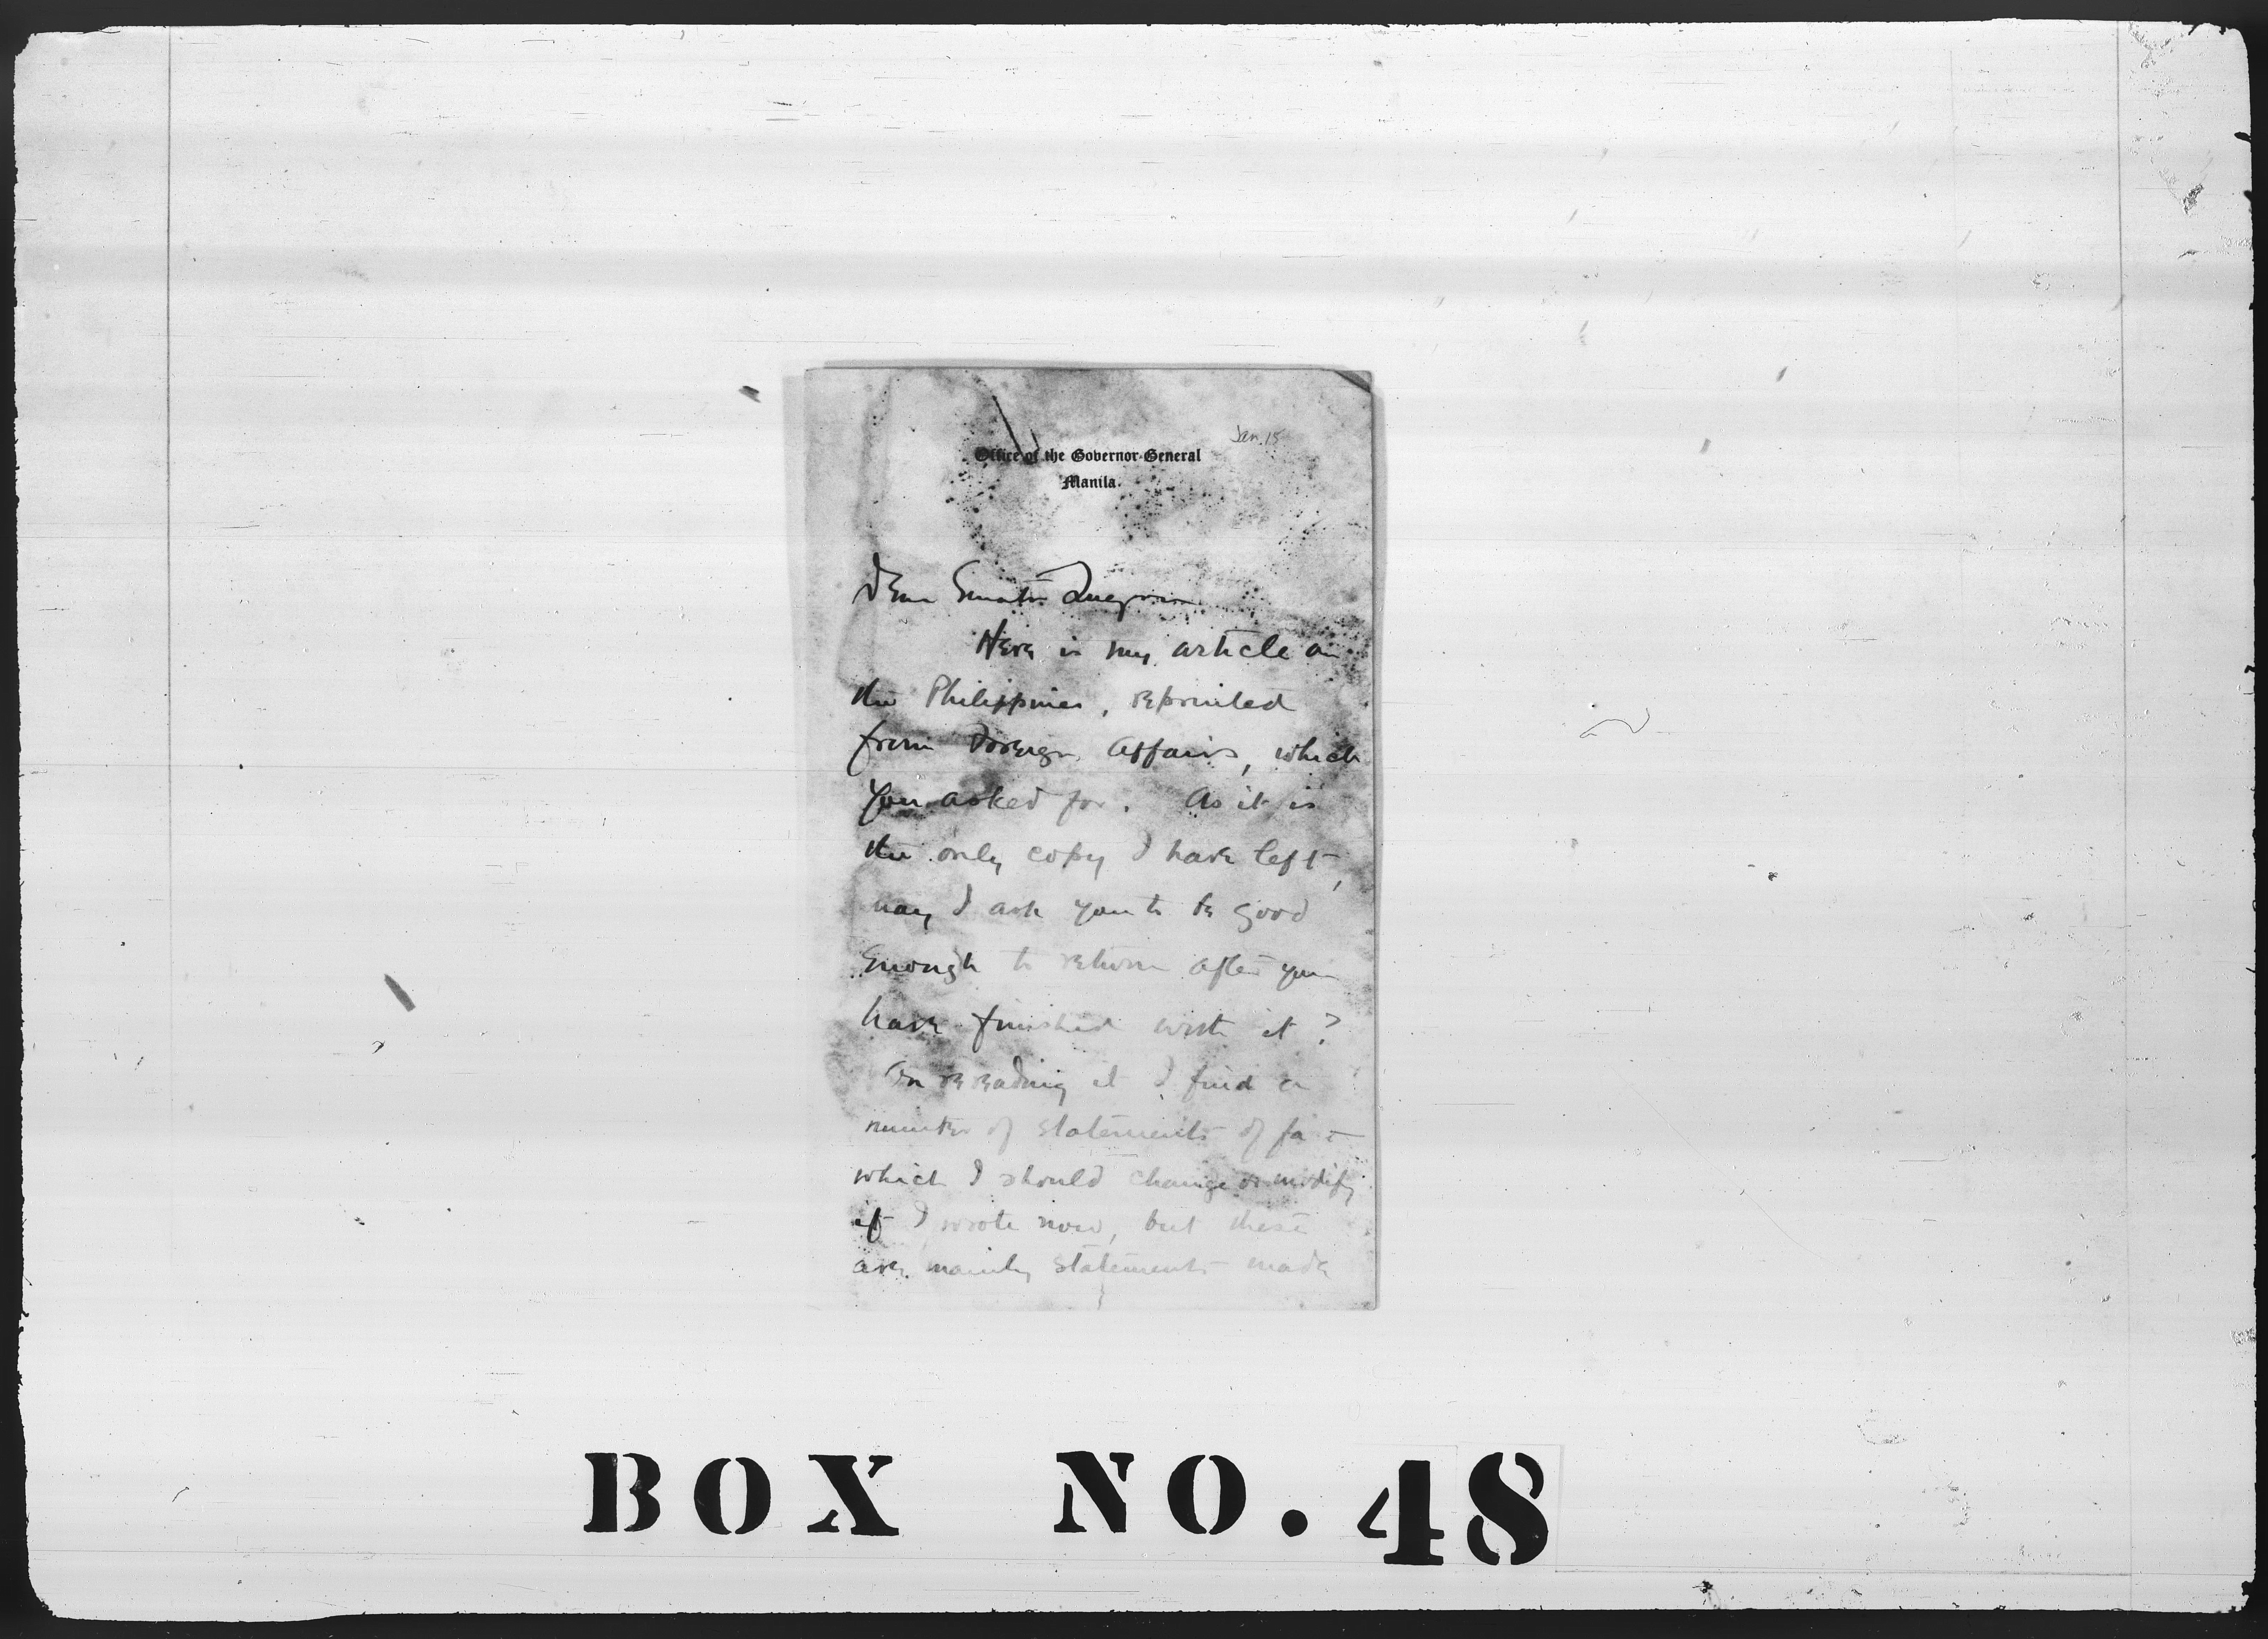 Jan. 15
Office of the Governor-General
Manila.
Dear Senator Quezon
Here is my article on
the Philippines, reprinted
from Foreign Affairs, which
you asked for. As it is
the only copy I have left,
may I ask you to be good
enough to return after you
have finished with it?
On rereading it I find a
number of statements of fact
which I should change or modify
if I wrote now, but these
are mainly statements made
BOX NO. 48